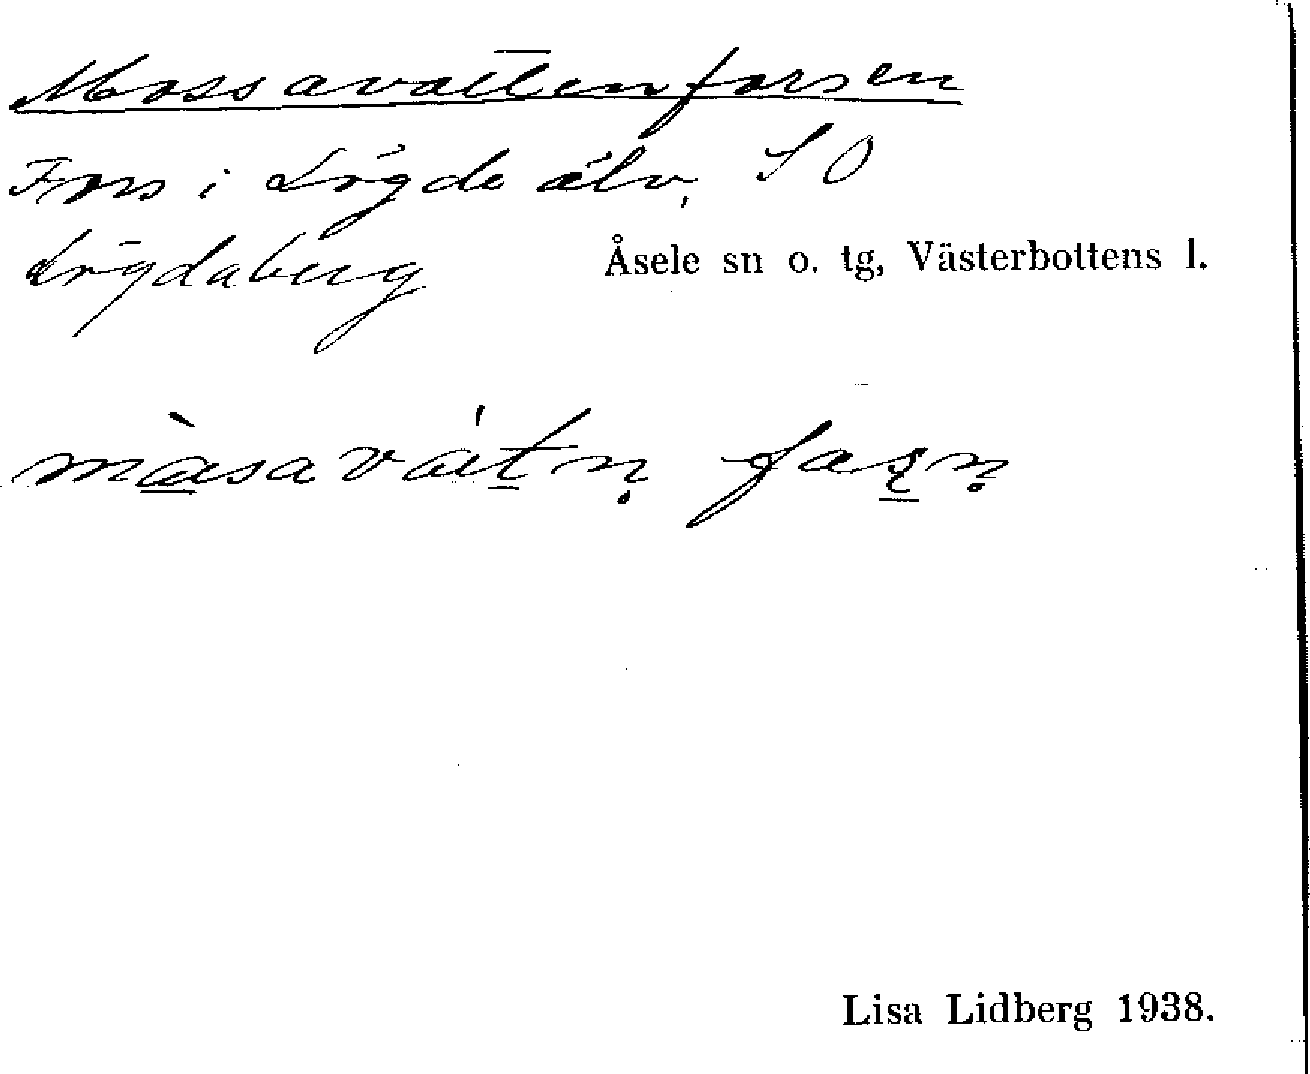 Mossavattenforsen
Fors i Lögde älv, S O
Lögdaberg Åsele sn o. tg, Västerbottens l.
màsavátṇ fasṇ
Lisa Lidberg 1938.